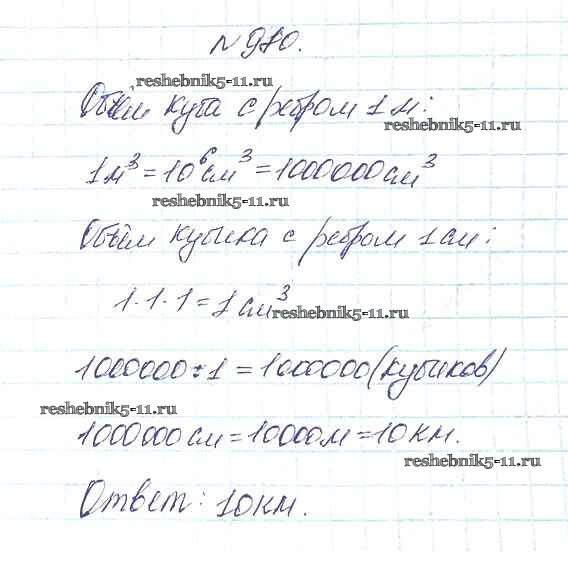 № 980.
reshebnik5-11.ru
Объём куба с ребром 1 м:
reshebnik5-11.ru
1м³ = 10⁶см³ = 1000000см³
reshebnik5-11.ru
Объём кубика с ребром 1см:
1·1·1 = 1 см³
reshebnik5-11.ru
1000000 : 1 = 1000000 (кубиков)
reshebnik5-11.ru
1000000см = 10000м = 10км.
reshebnik5-11.ru
Ответ: 10км.